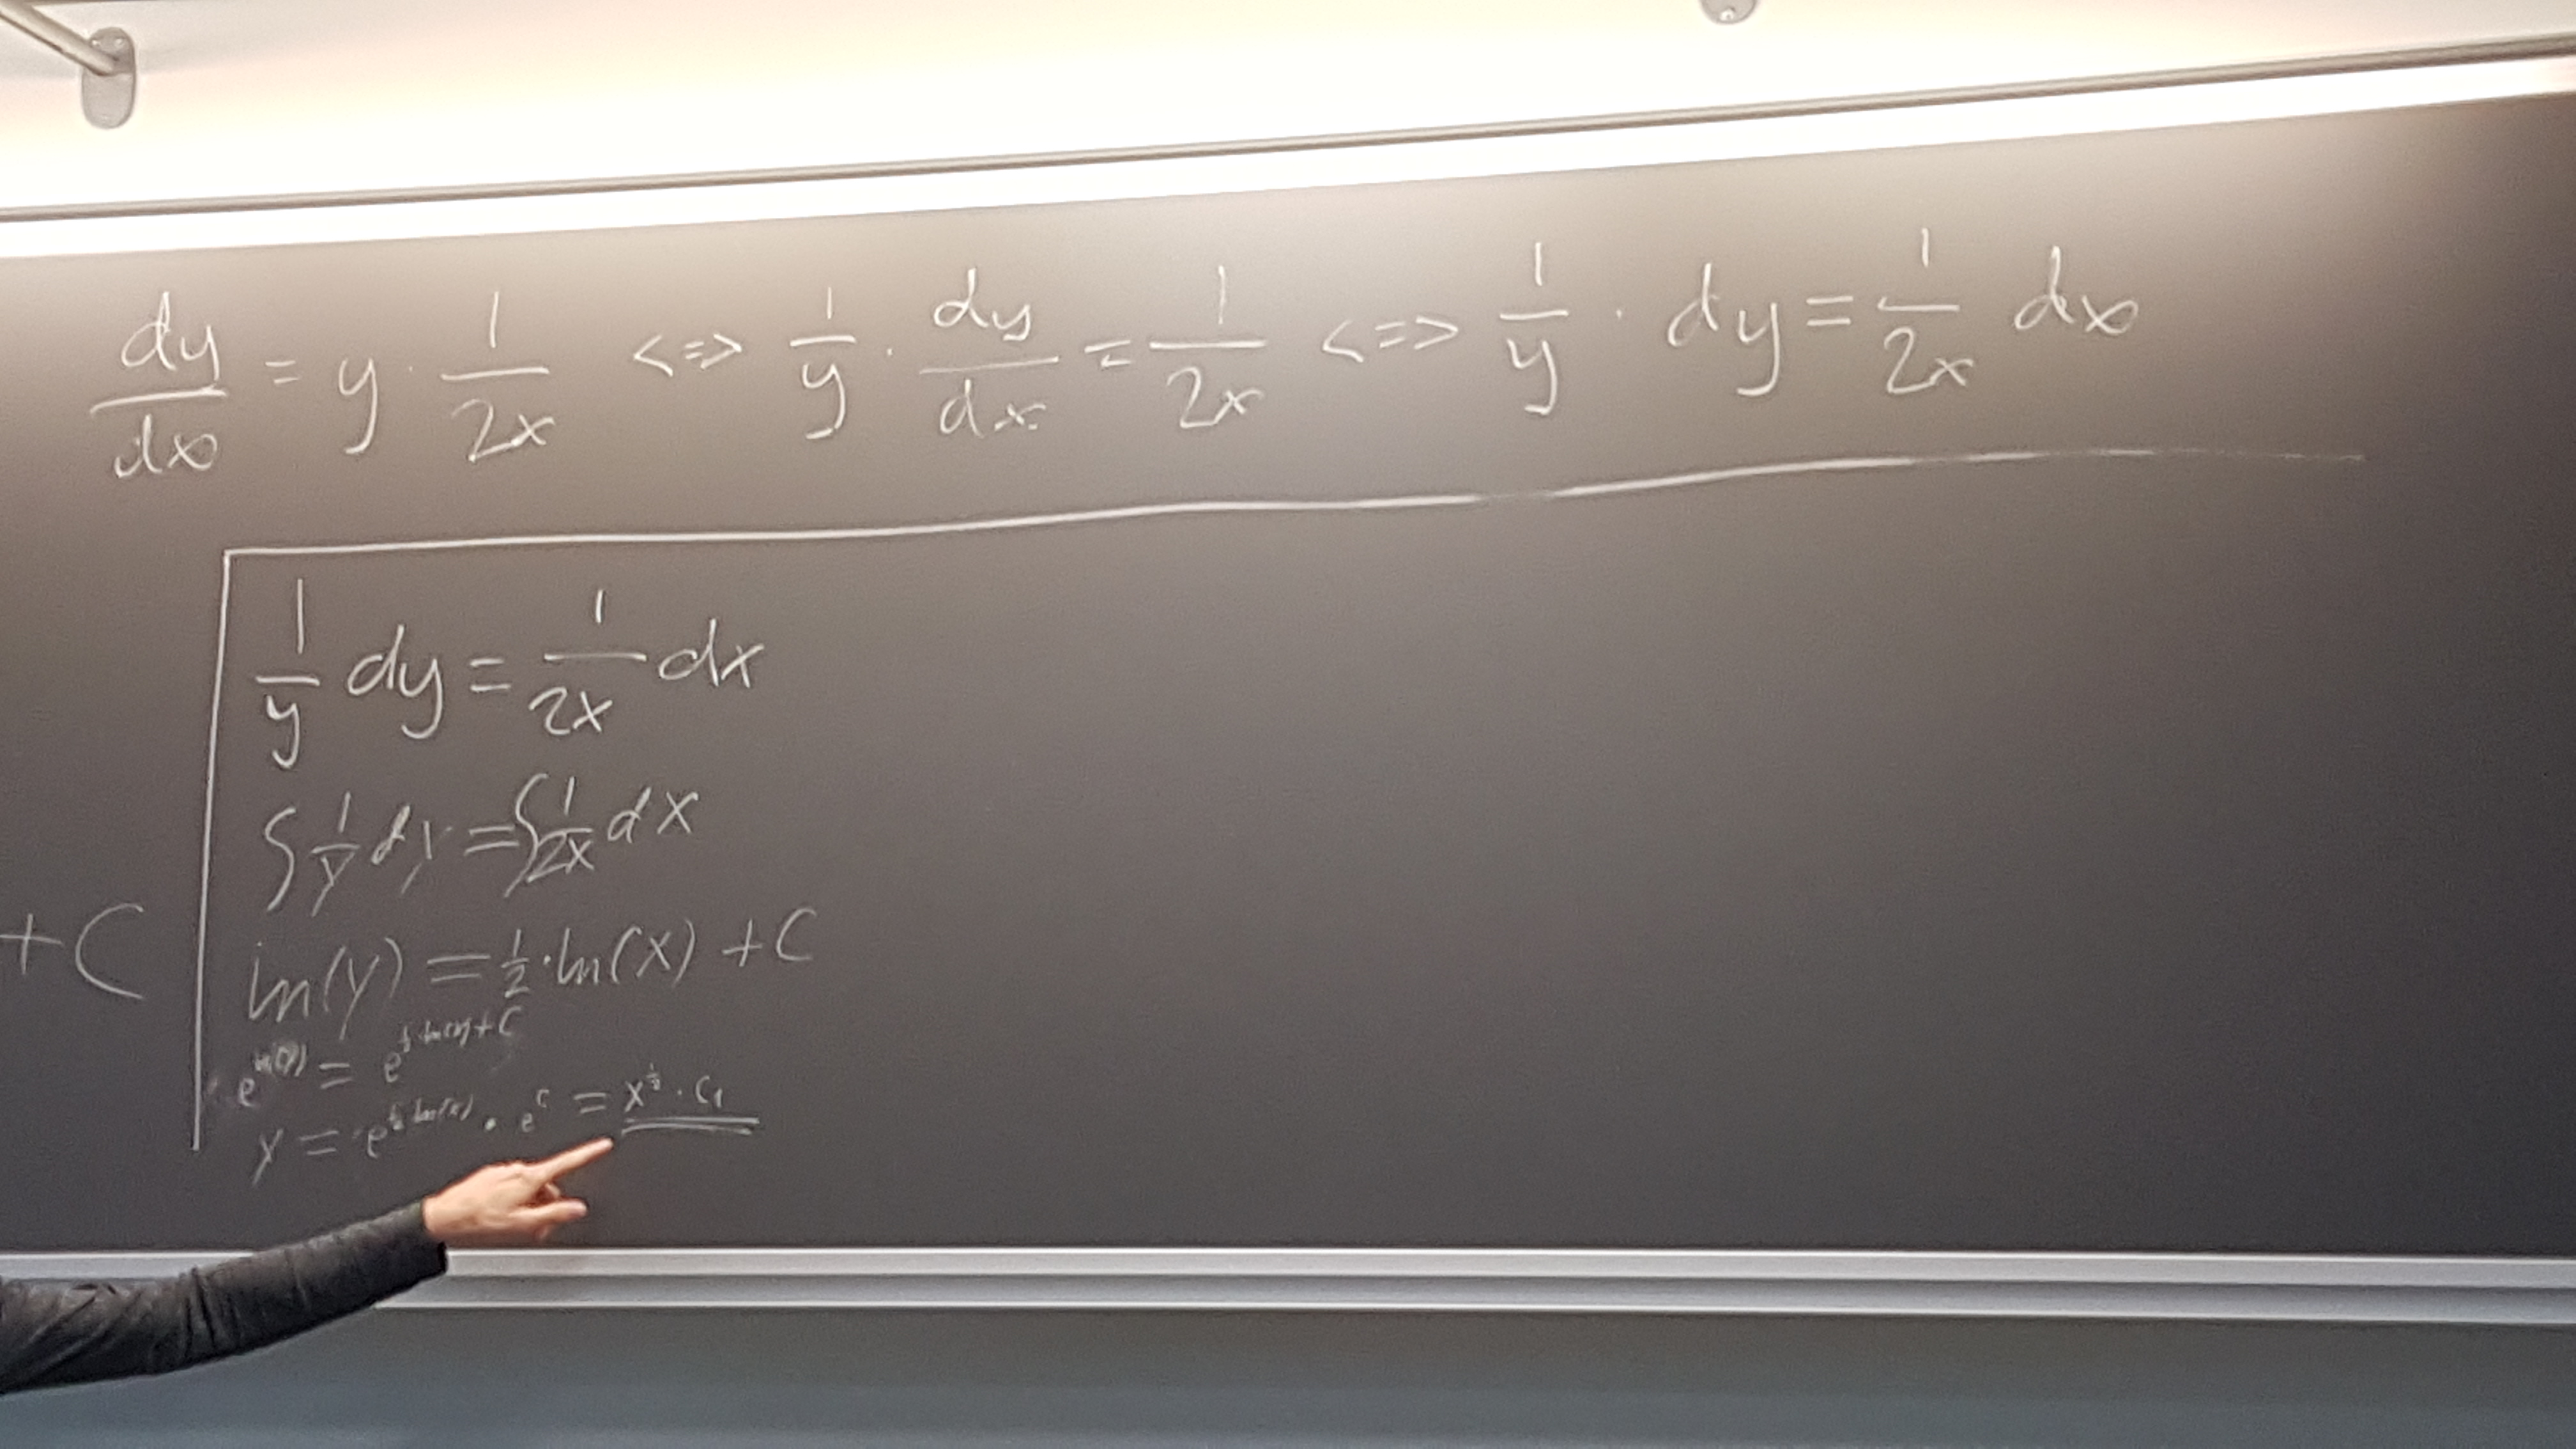 dy/dx = y · 1/2x <=> 1/y · dy/dx = 1/2x <=> 1/y · dy = 1/2x dx
1/y dy = 1/2x dx
∫ 1/y dy = ∫ 1/2x dx
+C
ln(y) = 1/2 · ln(x) + C
e^ln(y) = e^(1/2·ln(x)+C)
y = e^(1/2·ln(x)) · e^C = x^(1/2) · C₁